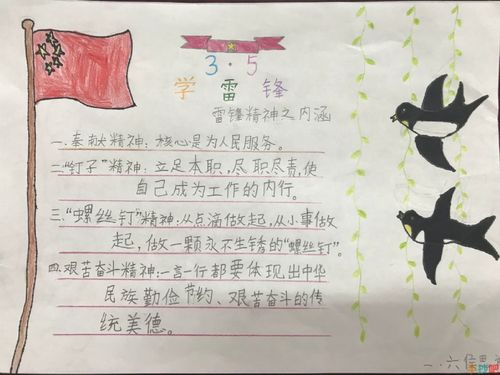 3·5
学雷锋
雷锋精神之内涵
一.奉献精神：核心是为人民服务。
二."钉子"精神：立足本职，尽职尽责，使
自己成为工作的内行。
三."螺丝钉"精神：从点滴做起，从小事做
起，做一颗永不生锈的"螺丝钉"。
四.艰苦奋斗精神：一言一行都要体现出中华
民族勤俭节约、艰苦奋斗的传
统美德。